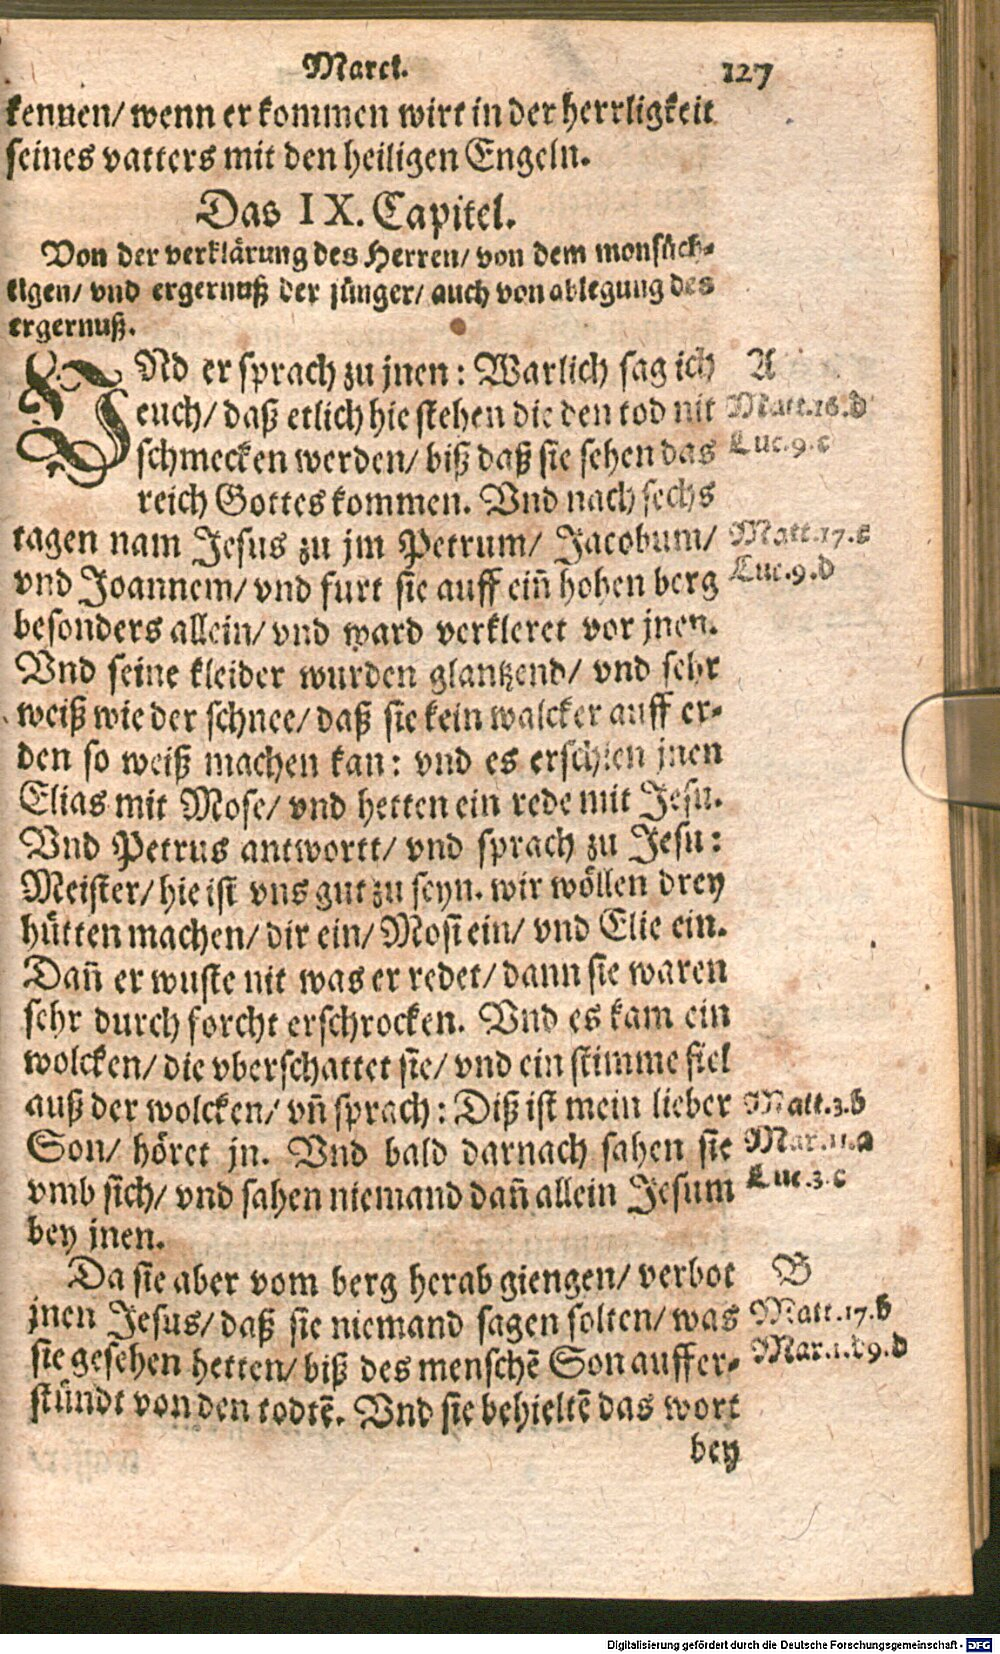 Marci. 127
kennen/ wenn er kommen wirt in der herrligkeit
seines vatters mit den heiligen Engeln.
Das IX. Capitel.
Von der verklärung des Herren/ von dem monsüch-
tigen/ vnd ergernuß der jünger/ auch von ablegung des
ergernuß.
VNd er sprach zu jnen: Warlich sag ich A
euch/ daß etlich hie stehen die den tod nit Matt.16.d
schmecken werden/ biß daß sie sehen das Luc.9.c
reich Gottes kommen. Vnd nach sechs
tagen nam Jesus zu jm Petrum/ Jacobum/ Matt.17.a
vnd Joannem/ vnd furt sie auff eiñ hohen berg Luc.9.d
besonders allein/ vnd ward verkleret vor jnen.
Vnd seine kleider wurden glantzend/ vnd sehr
weiß wie der schnee/ daß sie kein walcker auff er-
den so weiß machen kan: vnd es erschien jnen
Elias mit Mose/ vnd hetten ein rede mit Jesu.
Vnd Petrus antwortt/ vnd sprach zu Jesu:
Meister/ hie ist vns gut zu seyn. wir wöllen drey
hütten machen/ dir ein/ Mosi ein/ vnd Elie ein.
Dañ er wuste nit was er redet/ dann sie waren
sehr durch forcht erschrocken. Vnd es kam ein
wolcken/ die vberschattet sie/ vnd ein stimme fiel
auß der wolcken/ vñ sprach: Diß ist mein lieber Matt.3.b
Son/ höret jn. Vnd bald darnach sahen sie Mar.11.a
vmb sich/ vnd sahen niemand dañ allein Jesum Luc.3.c
bey jnen.
Da sie aber vom berg herab giengen/ verbot B
jnen Jesus/ daß sie niemand sagen solten/ was Matt.17.b
sie gesehen hetten/ biß des menschẽ Son auffer- Mar.1.d 9.d
stündt von den todtẽ. Vnd sie behieltẽ das wort
bey
Digitalisierung gefördert durch die Deutsche Forschungsgemeinschaft - DFG